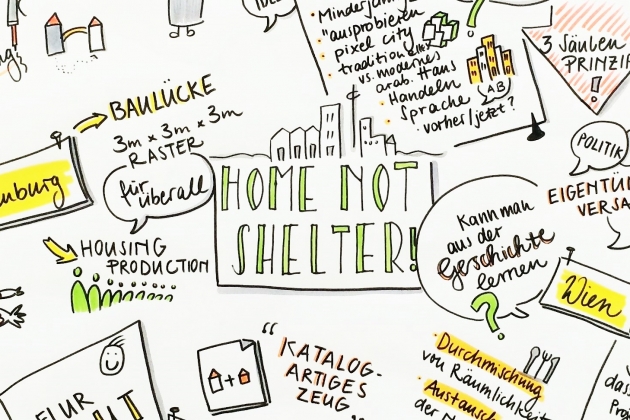 Minderjähri
"ausprobieren
pixel city
tradition
vs. modernes
arab. Haus
Handeln
Sprache
vorher/jetzt?
AB
3 SÄULEN
PRINZIP
!
BAULÜCKE
3m x 3m x 3m
RASTER
für
überall
nburg
HOUSING
PRODUCTION
HOME NOT
SHELTER!
POLITIK
EIGENTÜ
VERSA
Kann man
aus der
Geschichte
lernen
?
Wien
"KATALOG-
ARTIGES
ZEUG"
Durchmischung
von Räumlichkei
Austausch
der
das